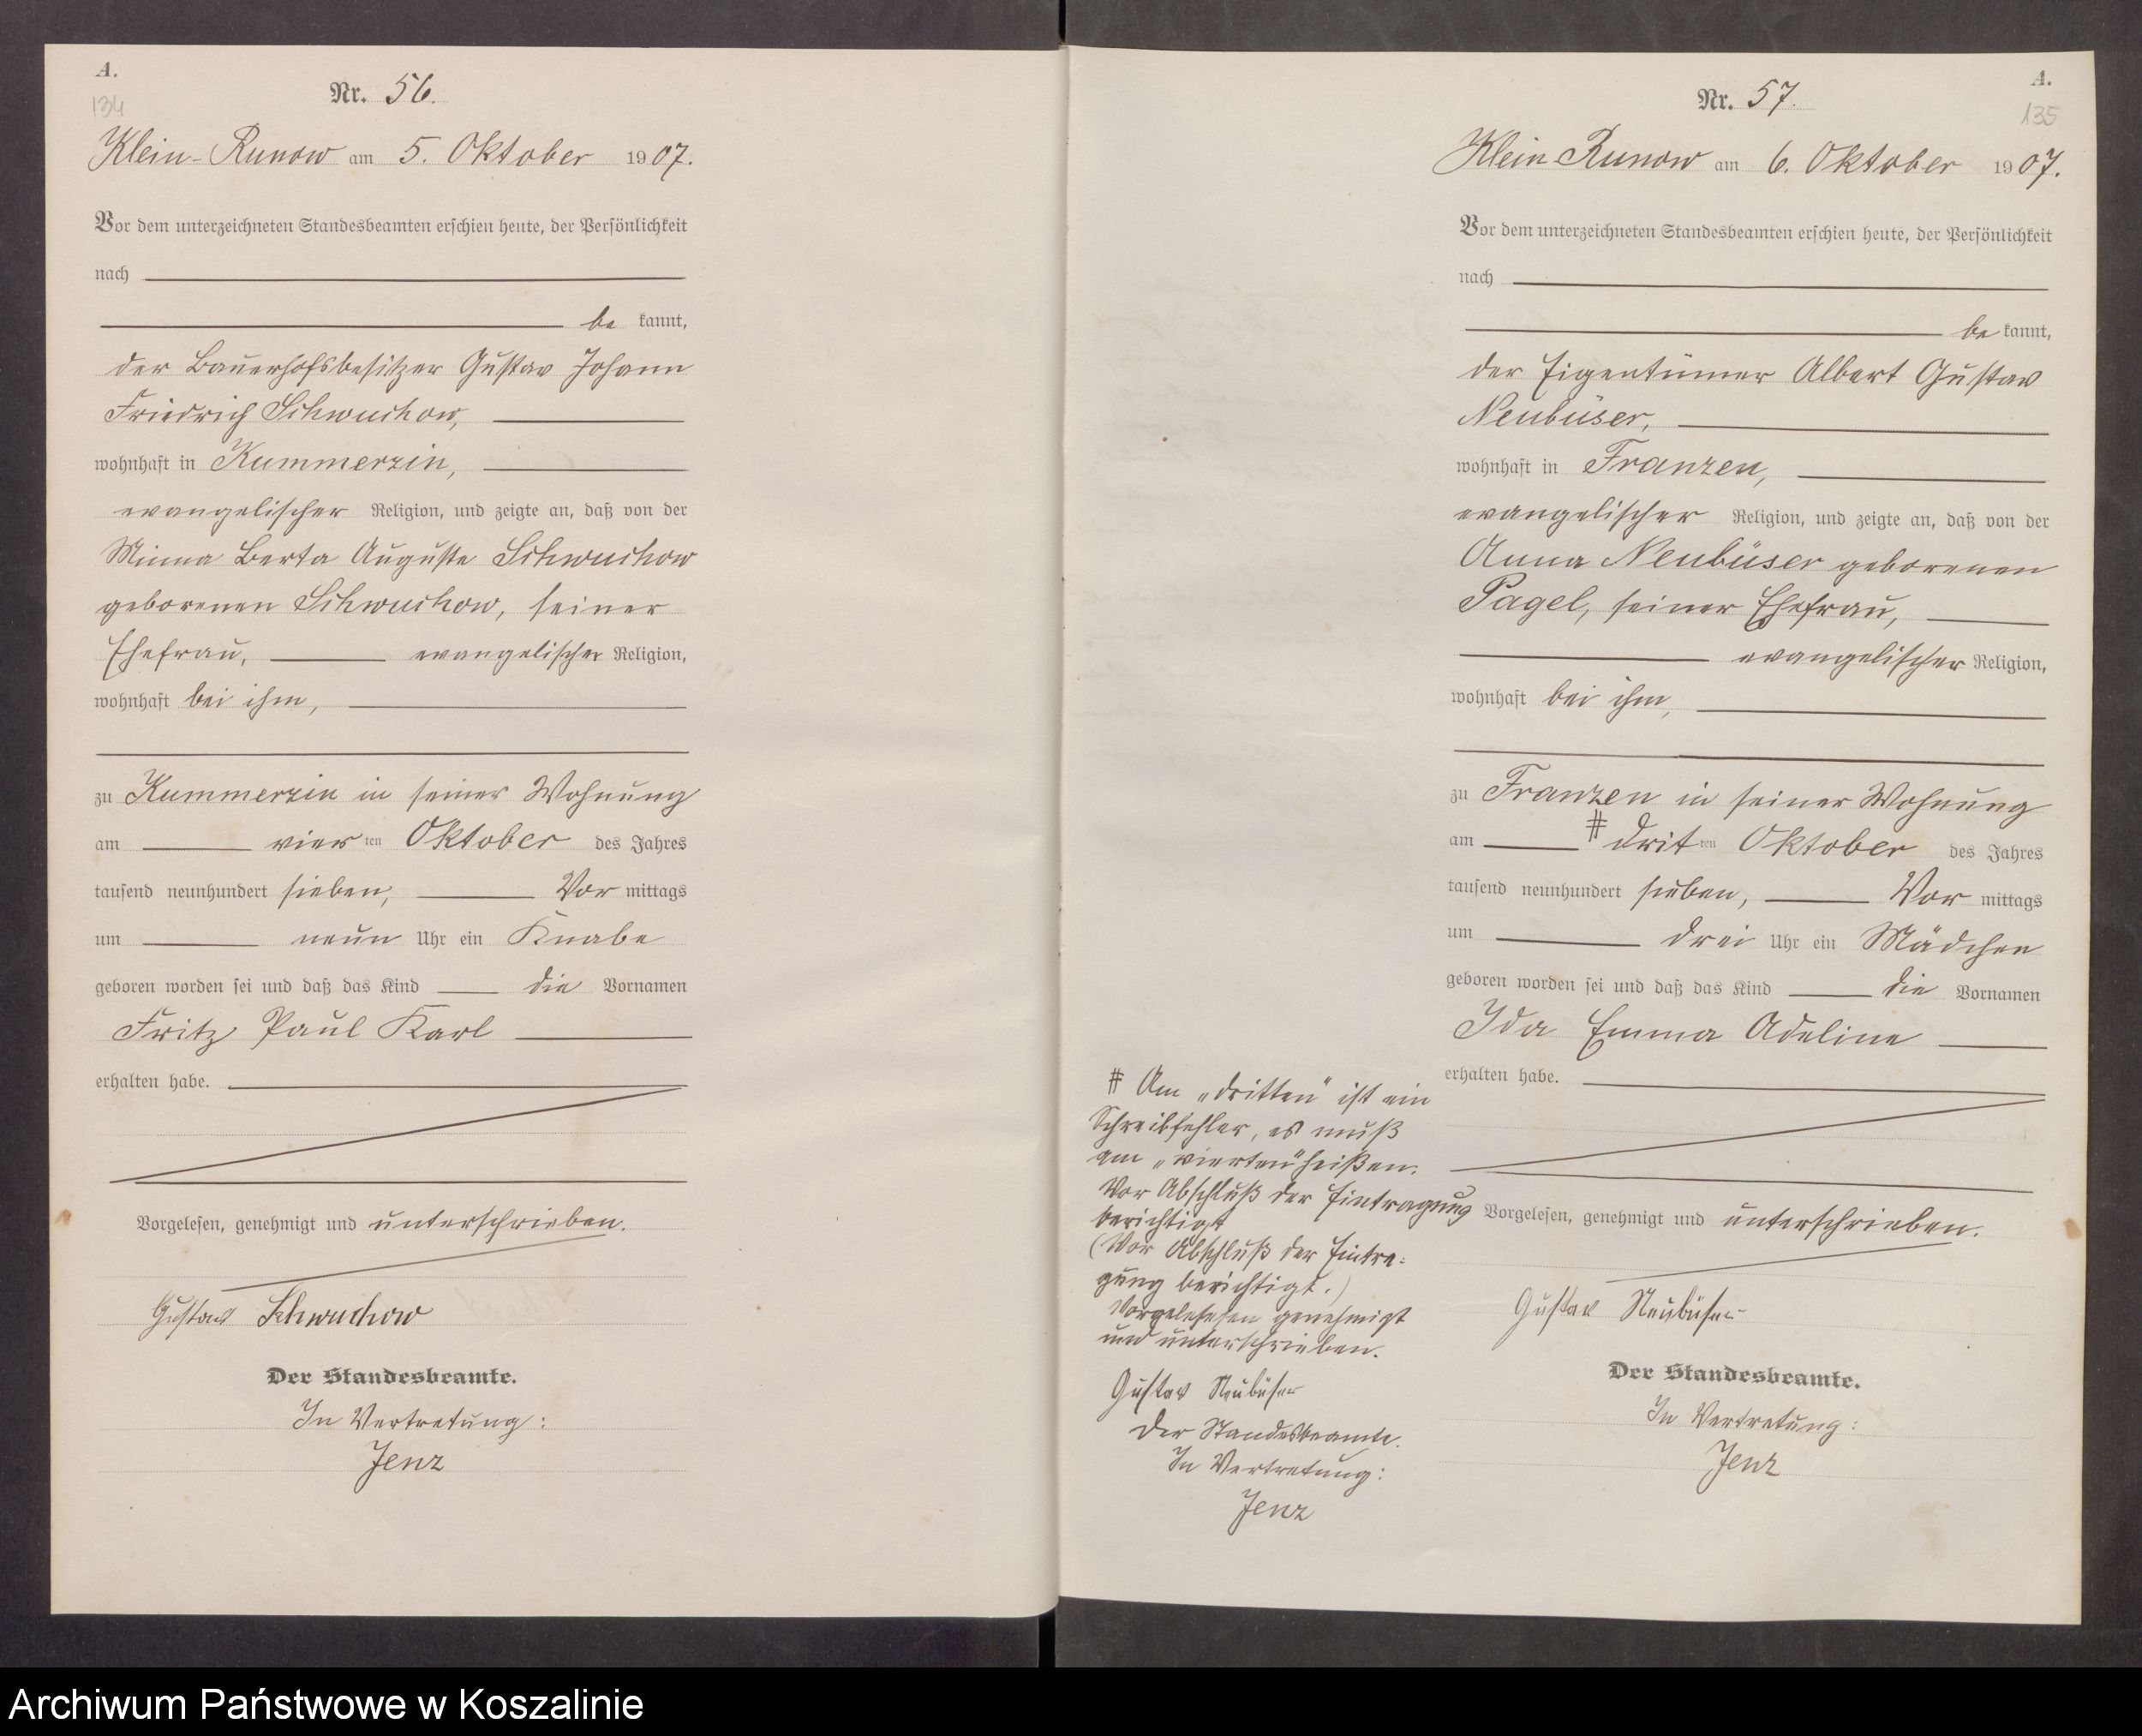 A.
134
Nr. 56.
Klein-Runow am 5. Oktober 1907.
Vor dem unterzeichneten Standesbeamten erschien heute, der Persönlichkeit
nach
be kannt,
der Bauerhofsbesitzer Gustav Johann
Friedrich Schwuchow,
wohnhaft in Kummerzin,
evangelischer Religion, und zeigte an, daß von der
Minna Berta Auguste Schwuchow
geborenen Schwuchow, seiner
Ehefrau, evangelischer Religion,
wohnhaft bei ihm,
zu Kummerzin in seiner Wohnung
am vier ten Oktober des Jahres
tausend neunhundert sieben, Vor mittags
um neun Uhr ein Knabe
geboren worden sei und daß das Kind die Vornamen
Fritz Paul Karl
erhalten habe.
Vorgelesen, genehmigt und unterschrieben.
Gustav Schwuchow
Der Standesbeamte.
In Vertretung:
Jenz
A.
135
Nr. 57.
Klein Runow am 6. Oktober 1907.
Vor dem unterzeichneten Standesbeamten erschien heute, der Persönlichkeit
nach
be kannt,
der Eigentümer Albert Gustav
Neubüser,
wohnhaft in Franzen,
evangelischer Religion, und zeigte an, daß von der
Anna Neubüser geborenen
Pagel, seiner Ehefrau,
evangelischer Religion,
wohnhaft bei ihm,
zu Franzen in seiner Wohnung
am # drit ten Oktober des Jahres
tausend neunhundert sieben, Vor mittags
um drei Uhr ein Mädchen
geboren worden sei und daß das Kind die Vornamen
Ida Emma Adeline
erhalten habe.
Vorgelesen, genehmigt und unterschrieben.
Gustav Neubüser
Der Standesbeamte.
In Vertretung:
Jenz
# Am „dritten" ist ein
Schreibfehler, es muß
am „vierten" heißen.
Vor Abschluß der Eintragung
berichtigt
(Vor Abschluß der Eintra-
gung berichtigt.)
Vorgelesesen genehmigt
und unterschrieben.
Gustav Neubüser
Der Standesbeamte.
In Vertretung:
Jenz
Archiwum Państwowe w Koszalinie